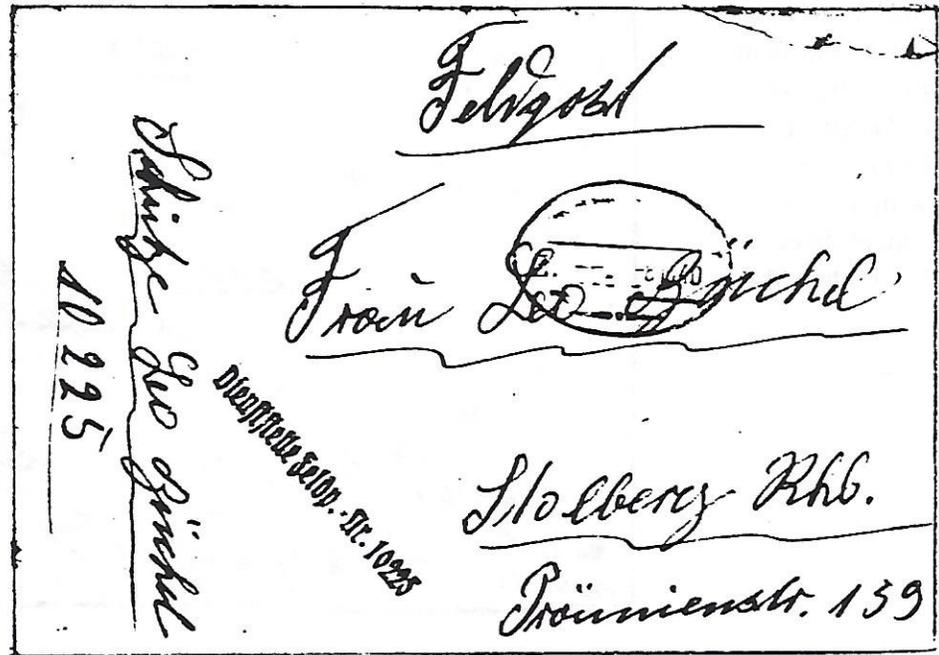 Feldpost
Frau Leo Büchel
Stolberg Rhld.
Prämienstr. 139
Schütze Leo Büchel
10225
Dienststelle Feldp.-Nr. 10225